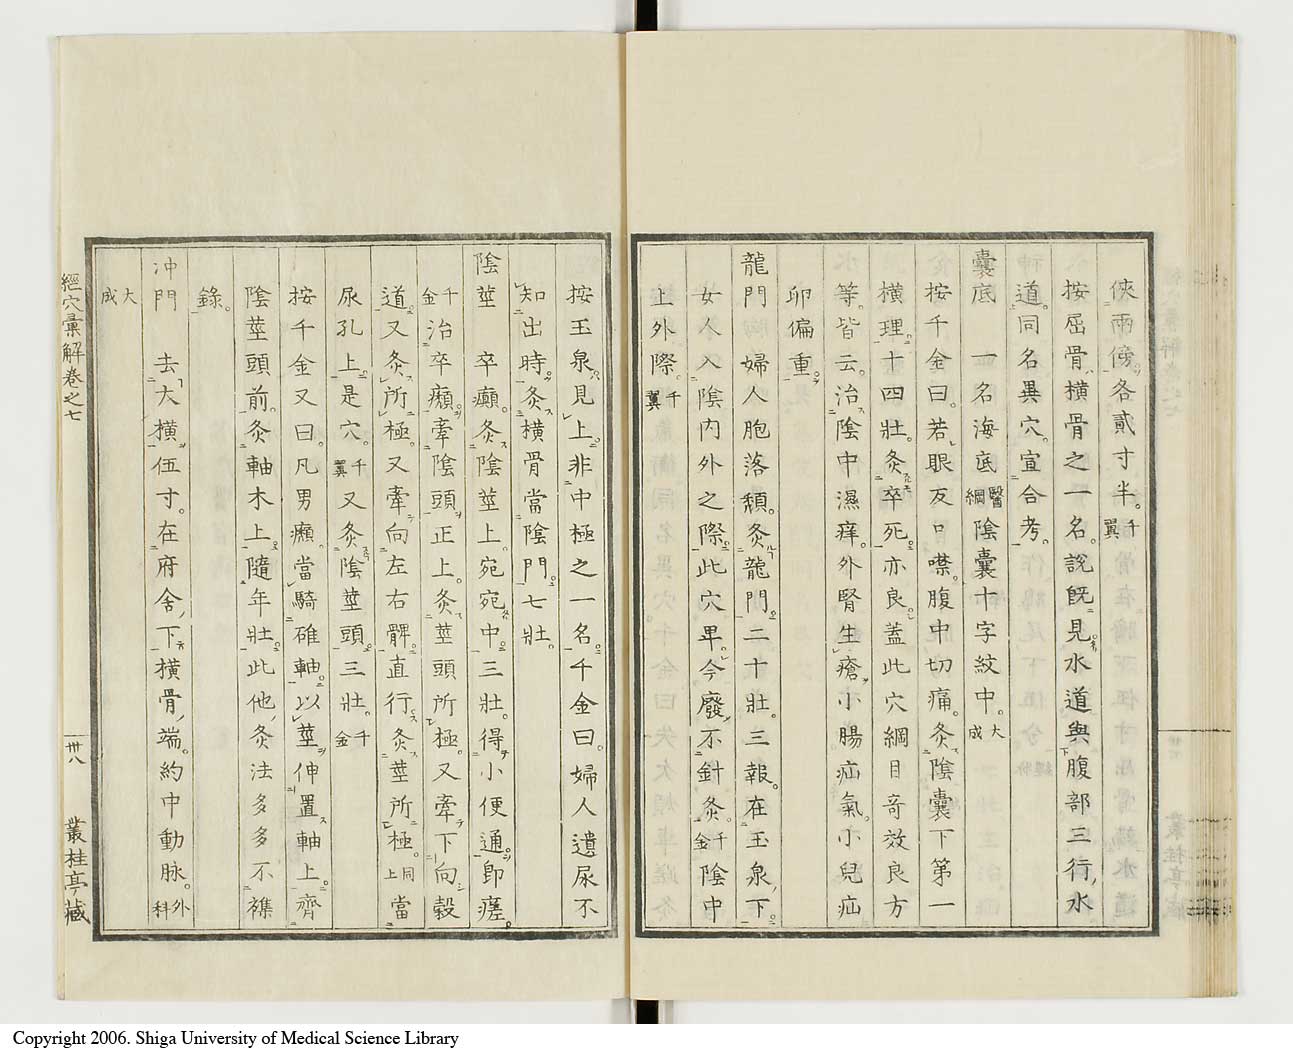 俠兩傍各貳寸半千翼
按屈骨橫骨之一名說既見水道與腹部三行水
道同名異穴宜合考
囊底 一名海底醫綱陰囊十字紋中大成
按千金曰若眼反口噤腹中切痛灸陰囊下第一
橫理十四壯灸卒死亦良蓋此穴綱目奇效良方
等皆云治陰中濕痒外腎生瘡小腸疝氣小兒疝
卵偏重
龍門 婦人胞落頹灸龍門二十壯三報在玉泉下
女人入陰內外之際此穴卑今廢不針灸千金陰中
上外際千翼
按玉泉見上非中極之一名千金曰婦人遺尿不
知出時灸橫骨當陰門七壯
陰莖 卒癲灸陰莖上宛宛中三壯得小便通即瘥
千金治卒癲牽陰頭正上灸莖頭所極又牽下向穀
道又灸所極又牽向左右髀直行灸莖所極同上當
尿孔上是穴千翼又灸陰莖頭三壯千金
按千金又曰凡男癩當騎碓軸以莖伸置軸上齊
陰莖頭前灸軸木上隨年壯此他灸法多多不襍
錄
沖門 去大橫伍寸在府舍下橫骨端約中動脉外科
大成
經穴彙解卷之七
卅八
叢桂亭藏
Copyright 2006. Shiga University of Medical Science Library